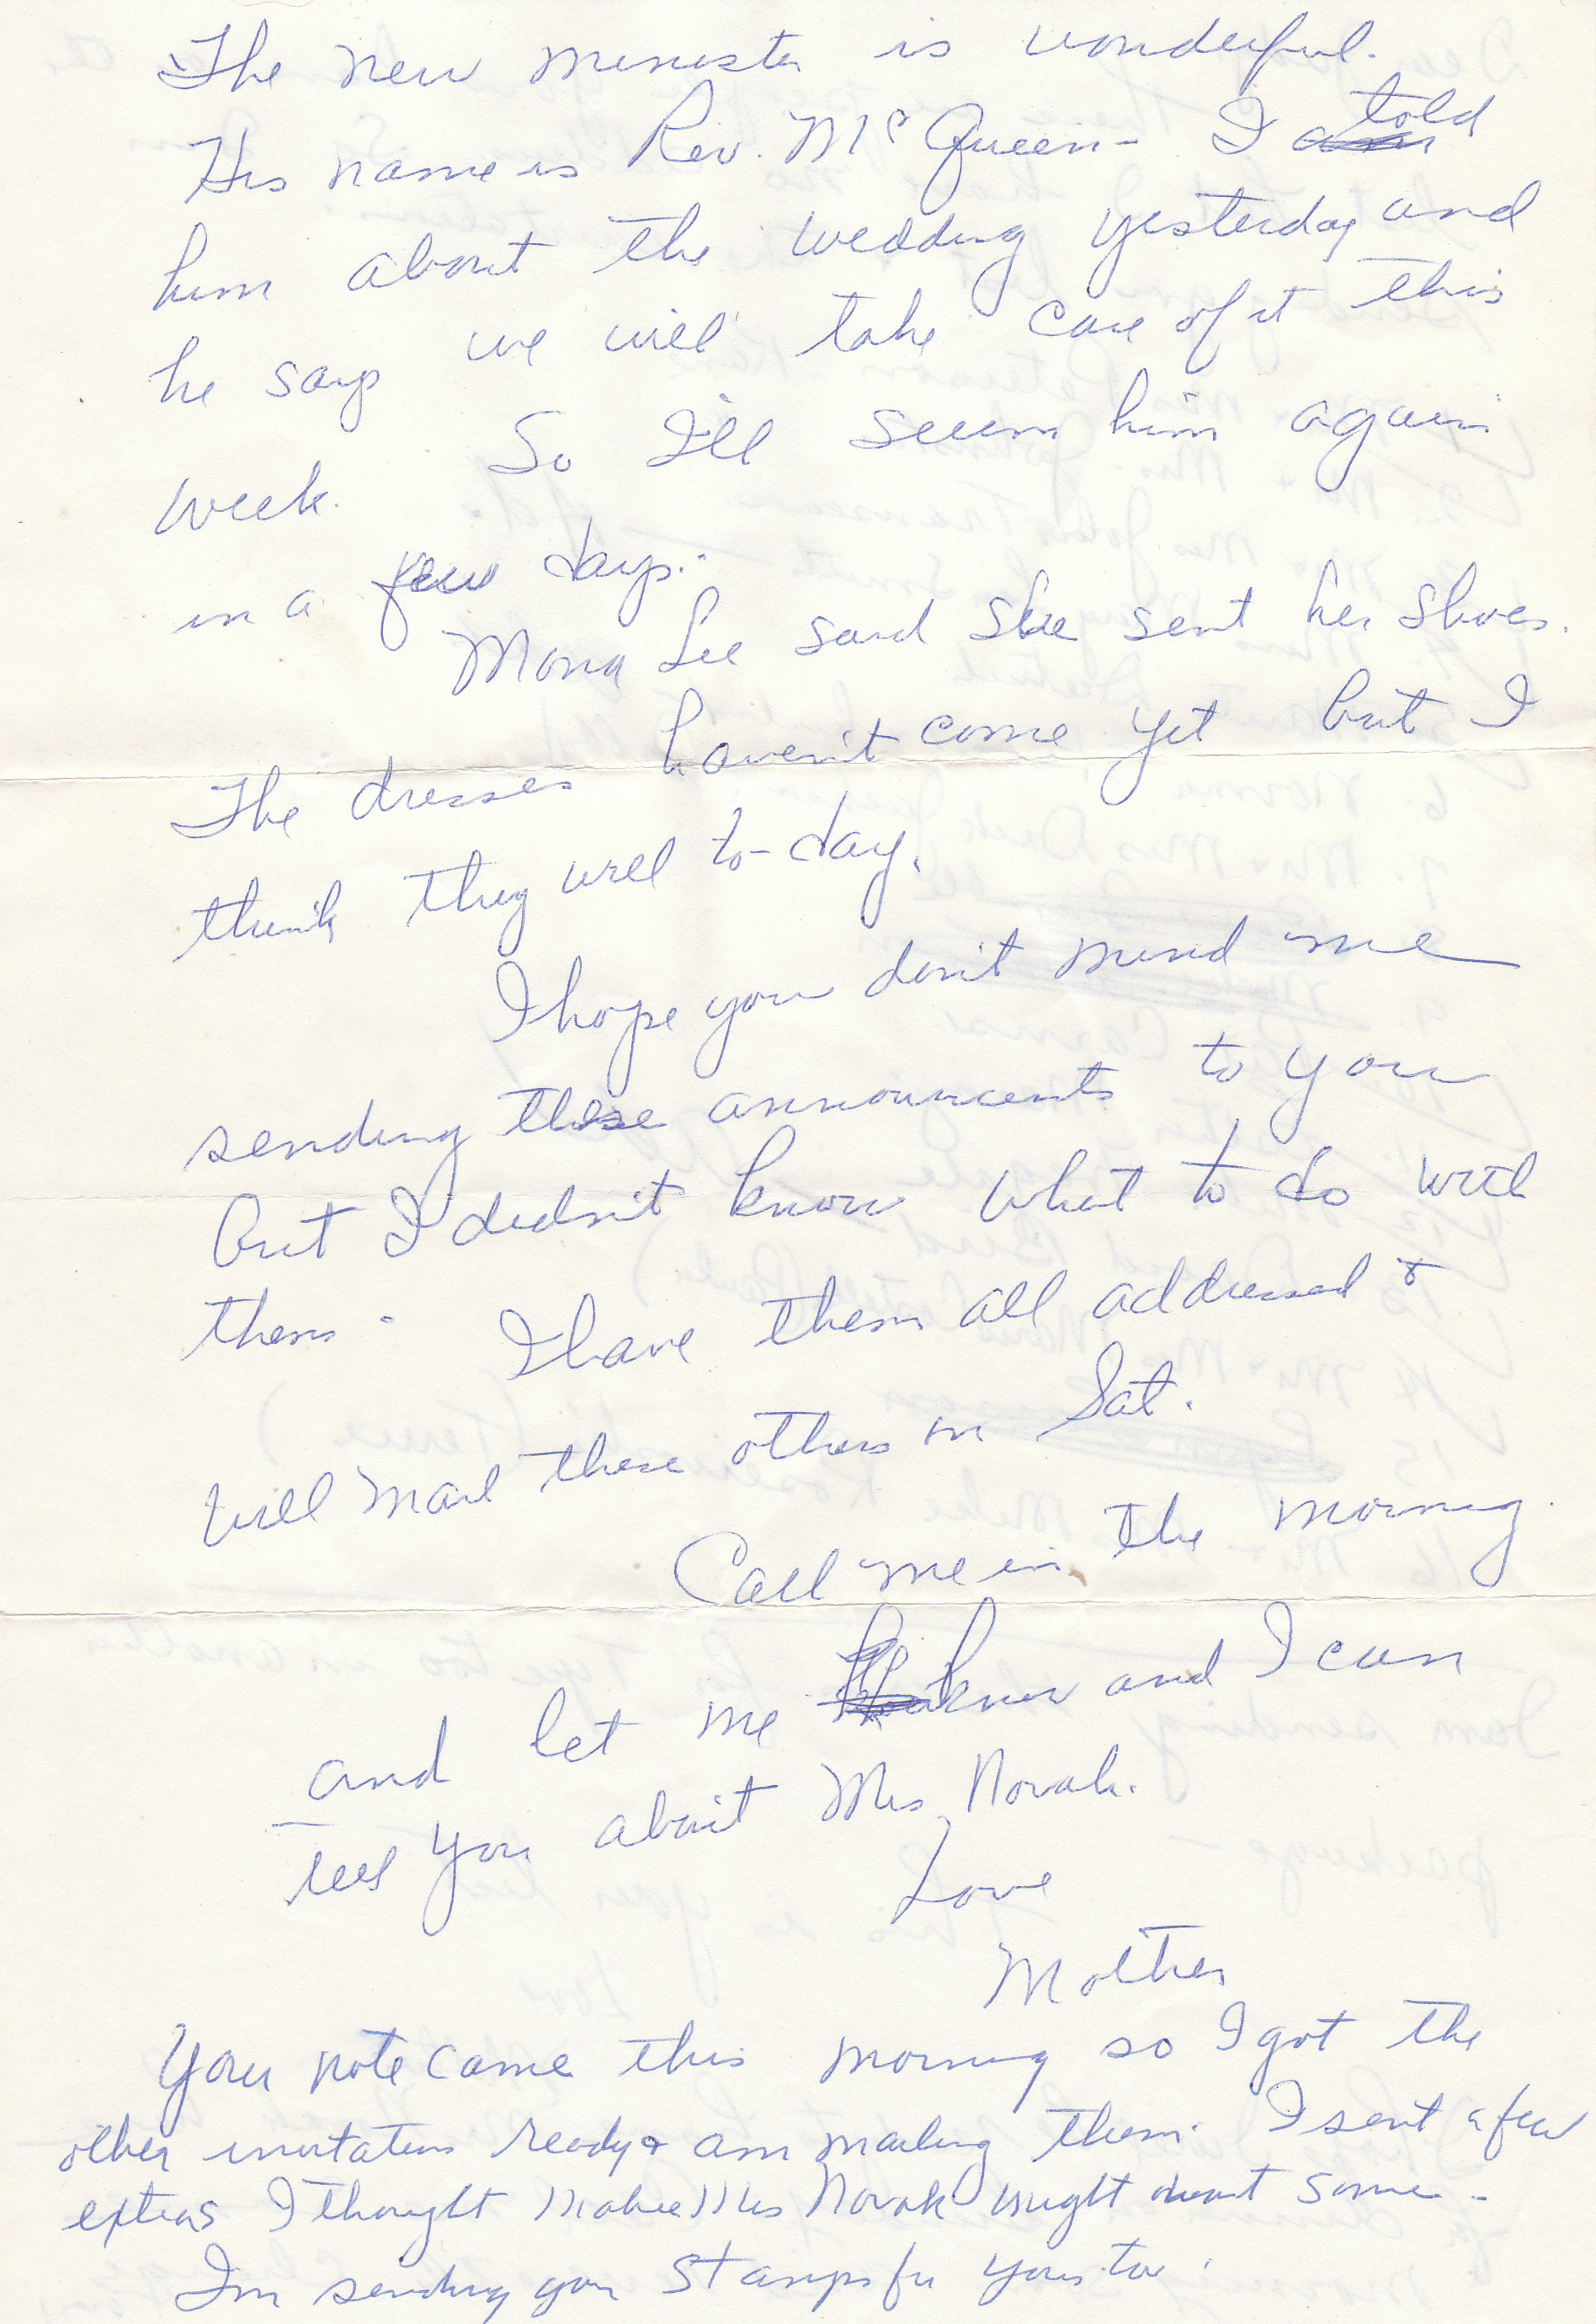 The new minister is wonderful.
His name is Rev. McQueen - I told
him about the wedding yesterday and
he says we will take care of it this
week. So I'll seeem him again
in a few days..
Mona Lee said she sent her shoes.
The dresses haven't come yet but I
think they will to-day.
I hope you don't mind me
sending these announcents to you
but I didn't know what to do with
them - I have them all addressed &
will mail these others on Sat.
Call me in the morning.
and let me know and I can
tell you about Mrs. Novak.
Love
Mother
Your note came this morning so I got the
other invitations ready & am mailing them. I sent a few
extras I thought mabee Mrs Novak might want some -
I'm sending you stamps for yours too.